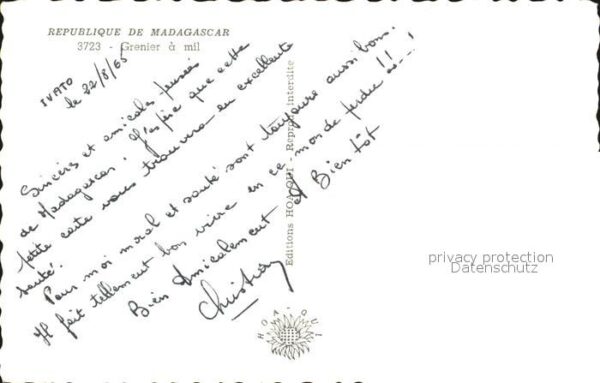 REPUBLIQUE DE MADAGASCAR
3723 - Grenier à mil
IVATO
le 22/8/65
Sincères et amicales pensées
de Madagascar. J'espère que cette
petite carte vous trouvera en excellente
santé.
Pour moi moral et santé sont toujours aussi bons.
Il fait tellement bon vivre en ce monde perdu !!
Bien Amicalement et Bientôt
Christian
Editions HOA-QUI - Reprod. interdite
HOA-QUI
privacy protection
Datenschutz